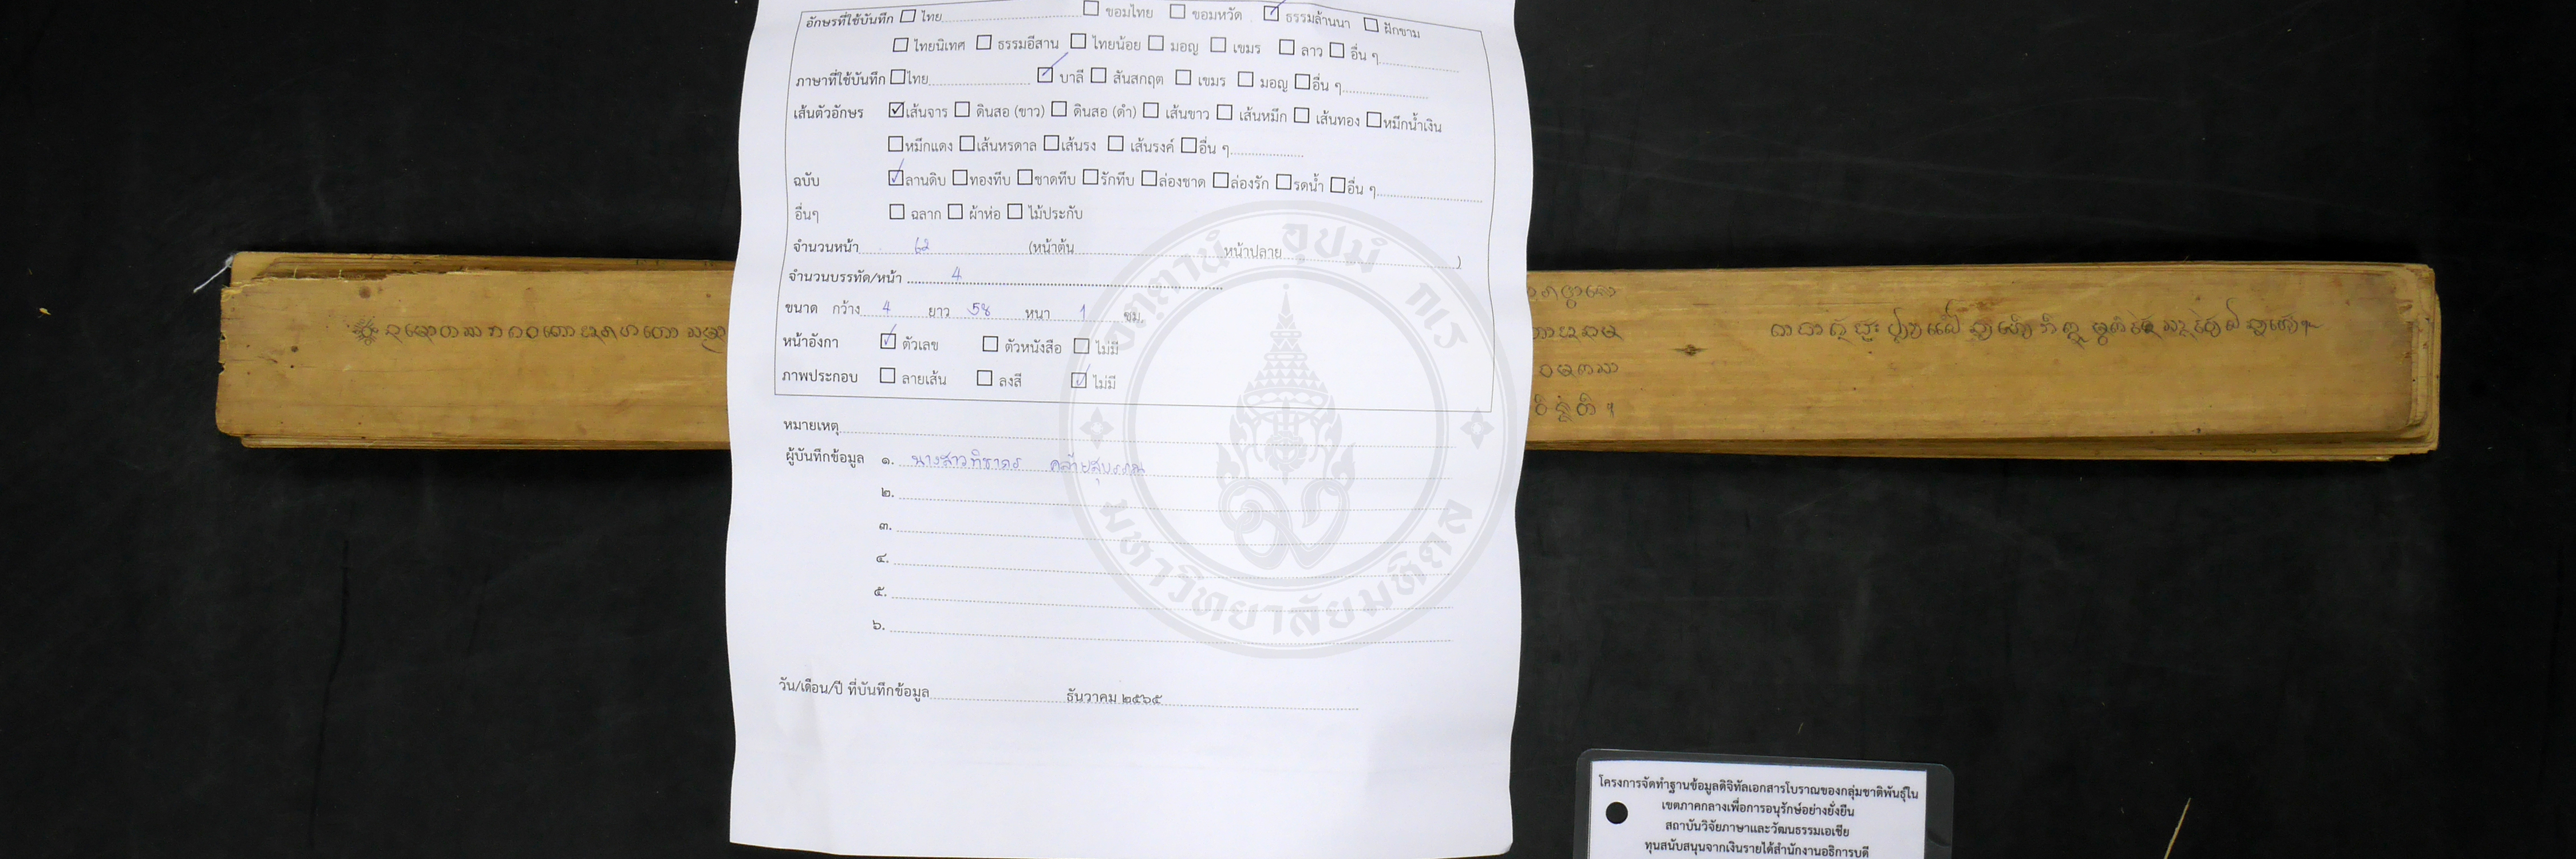 อักษรที่ใช้บันทึก ☐ ไทย.................... ☐ ขอมไทย ☐ ขอมหวัด ☑ ธรรมล้านนา ☐ ฝักขาม
☐ ไทยนิเทศ ☐ ธรรมอีสาน ☐ ไทยน้อย ☐ มอญ ☐ เขมร ☐ ลาว ☐ อื่น ๆ....................
ภาษาที่ใช้บันทึก ☐ไทย.................... ☑ บาลี ☐ สันสกฤต ☐ เขมร ☐ มอญ ☐อื่น ๆ....................
เส้นตัวอักษร ☑เส้นจาร ☐ ดินสอ (ขาว) ☐ ดินสอ (ดำ) ☐ เส้นขาว ☐ เส้นหมึก ☐ เส้นทอง ☐หมึกน้ำเงิน
☐หมึกแดง ☐เส้นหรดาล ☐เส้นรง ☐ เส้นรงค์ ☐อื่น ๆ....................
ฉบับ ☑ลานดิบ ☐ทองทึบ ☐ชาดทึบ ☐รักทึบ ☐ล่องชาด ☐ล่องรัก ☐รดน้ำ ☐อื่น ๆ....................
อื่นๆ ☐ ฉลาก ☐ ผ้าห่อ ☐ ไม้ประกับ
จำนวนหน้า 62 (หน้าต้น....................หน้าปลาย....................)
จำนวนบรรทัด/หน้า 4
ขนาด กว้าง 4 ยาว 58 หนา 1 ซม.
หน้าอังกา ☑ ตัวเลข ☐ ตัวหนังสือ ☐ ไม่มี
ภาพประกอบ ☐ ลายเส้น ☐ ลงสี ☑ ไม่มี
หมายเหตุ....................
ผู้บันทึกข้อมูล ๑. นางสาวทิชากร คล้ายสุบรรณ
๒.
๓.
๔.
๕.
๖.
วัน/เดือน/ปี ที่บันทึกข้อมูล.................... ธันวาคม ๒๕๖๕
อตฺตานํ อุปมํ กเร
มหาวิทยาลัยมหิดล
โครงการจัดทำฐานข้อมูลดิจิทัลเอกสารโบราณของกลุ่มชาติพันธุ์ใน
เขตภาคกลางเพื่อการอนุรักษ์อย่างยั่งยืน
สถาบันวิจัยภาษาและวัฒนธรรมเอเชีย
ทุนสนับสนุนจากเงินรายได้สำนักงานอธิการบดี